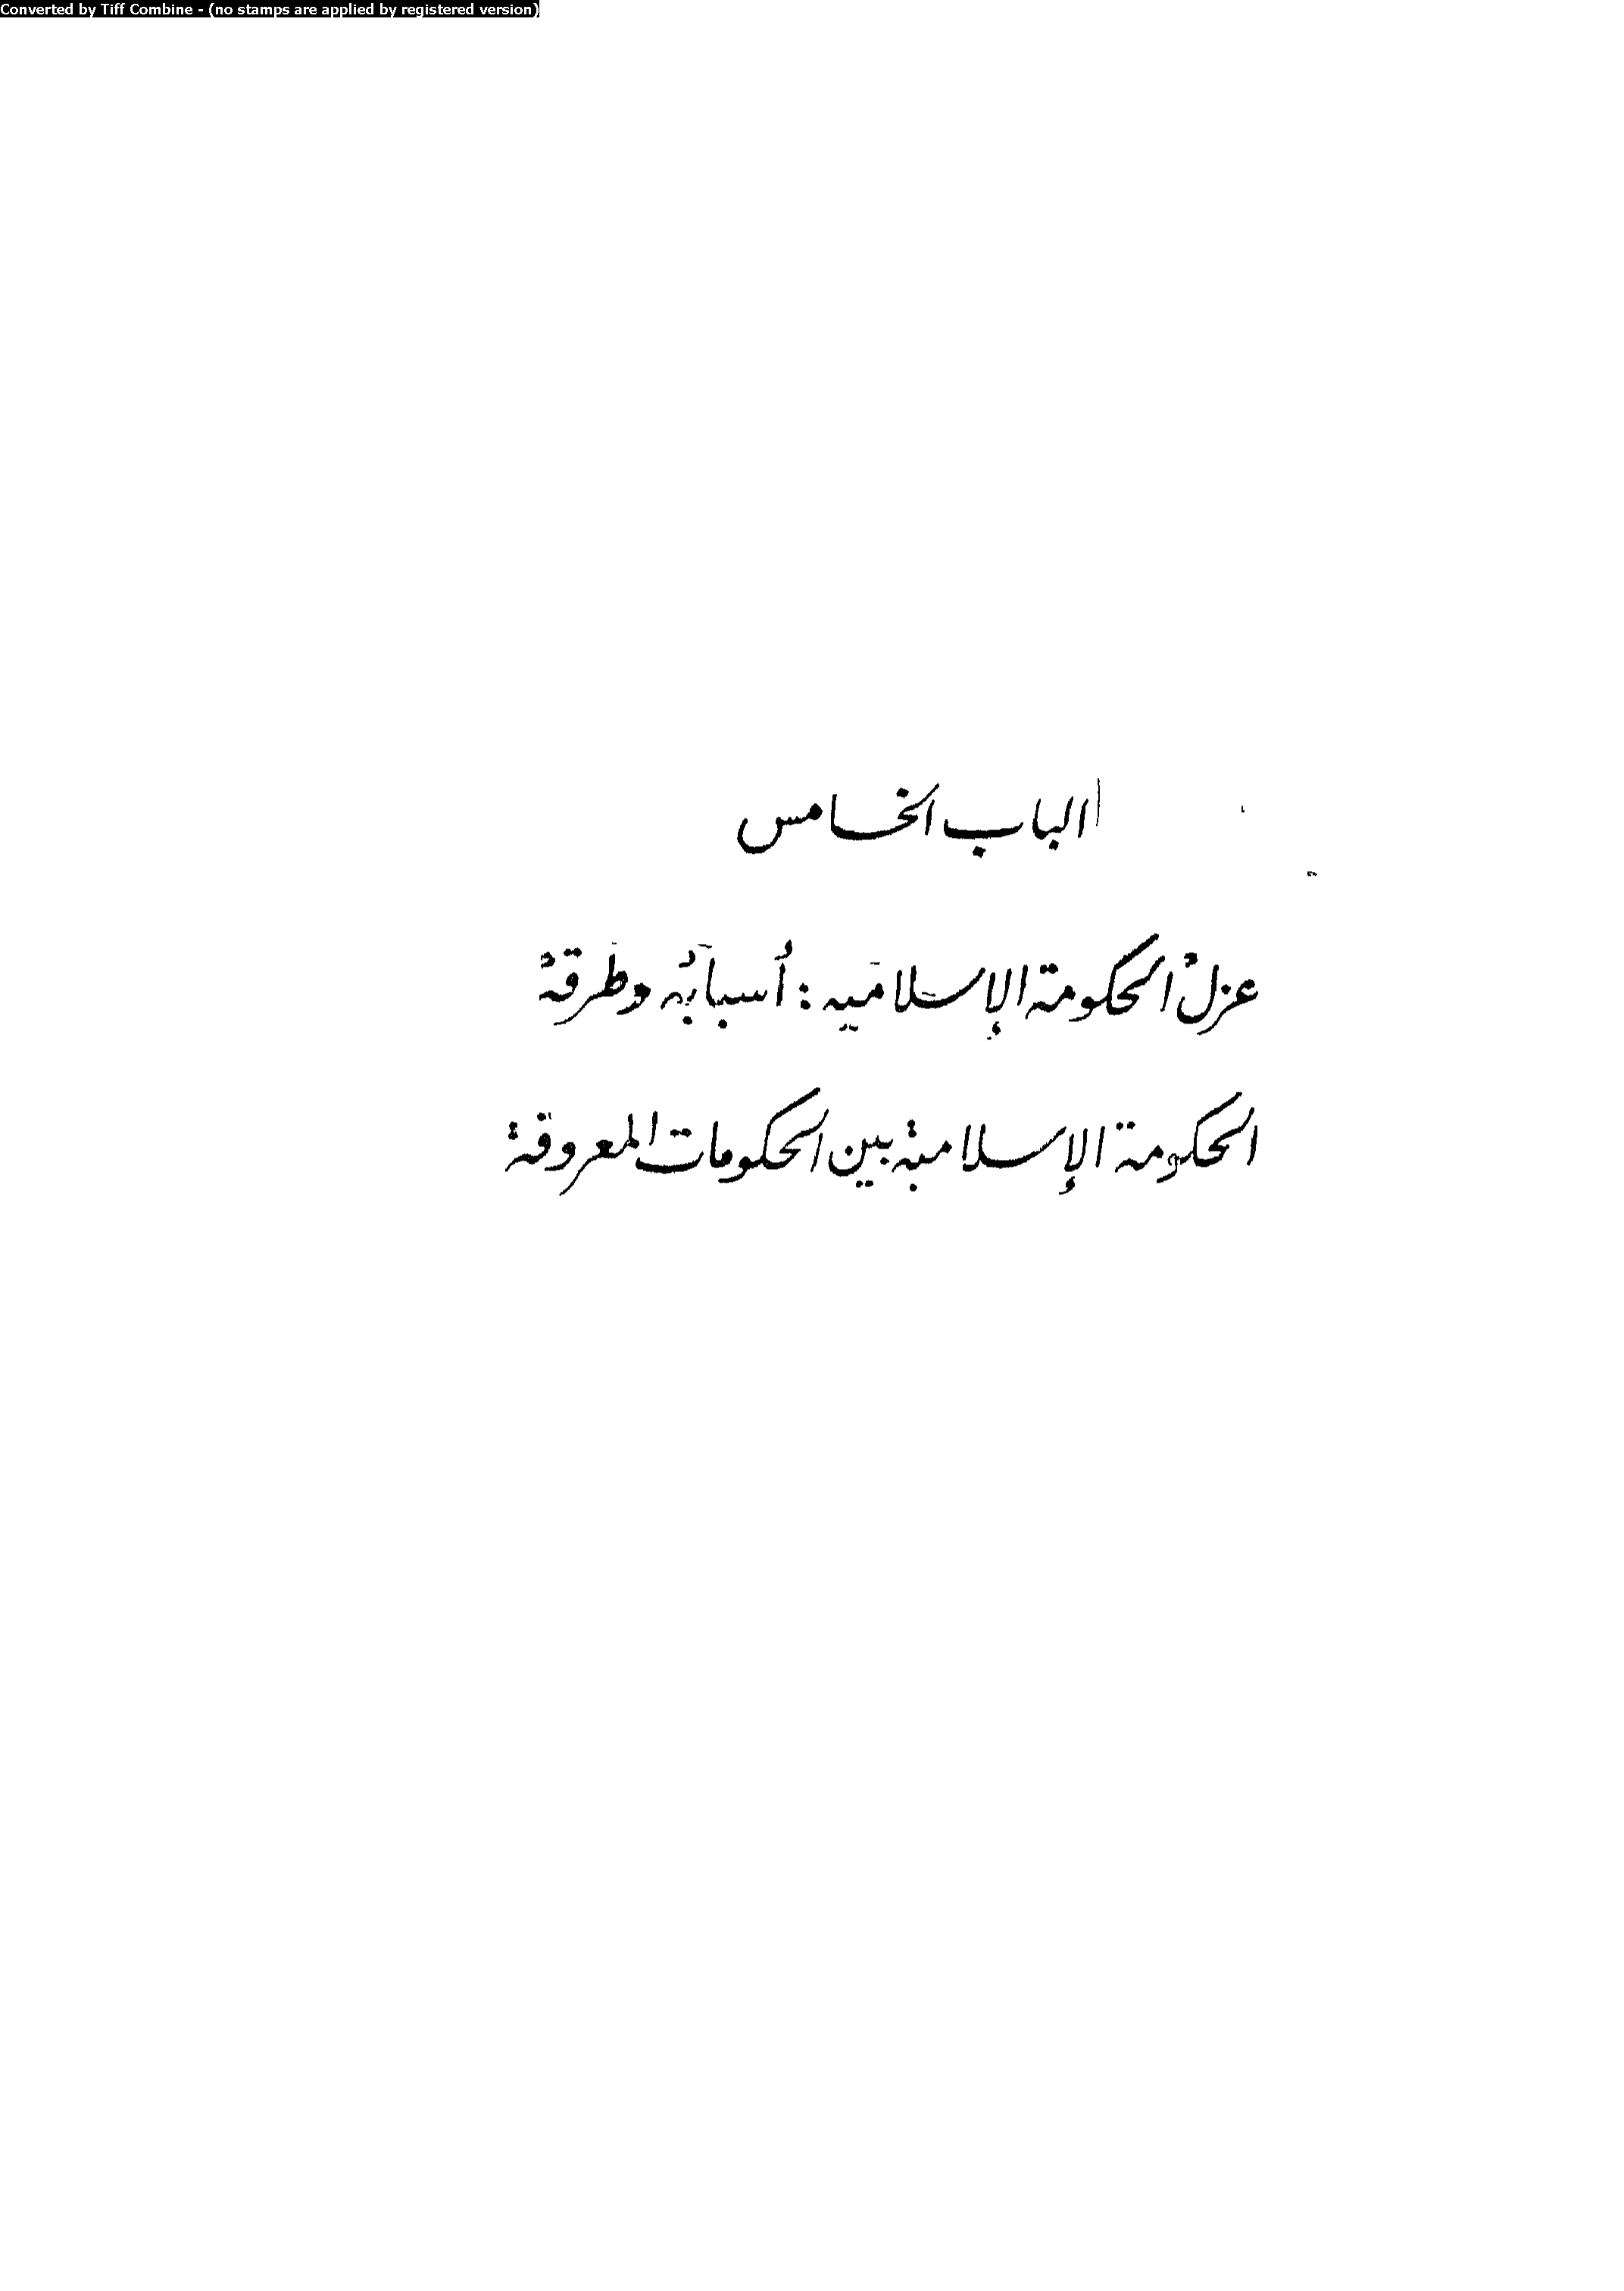 Converted by Tiff Combine - (no stamps are applied by registered version)
الباب الخامس
عزلُ الحكومة الإسلاميه : أسبابُه وطرقهُ
الحكومة الإسلامية بين الحكومات المعروفة